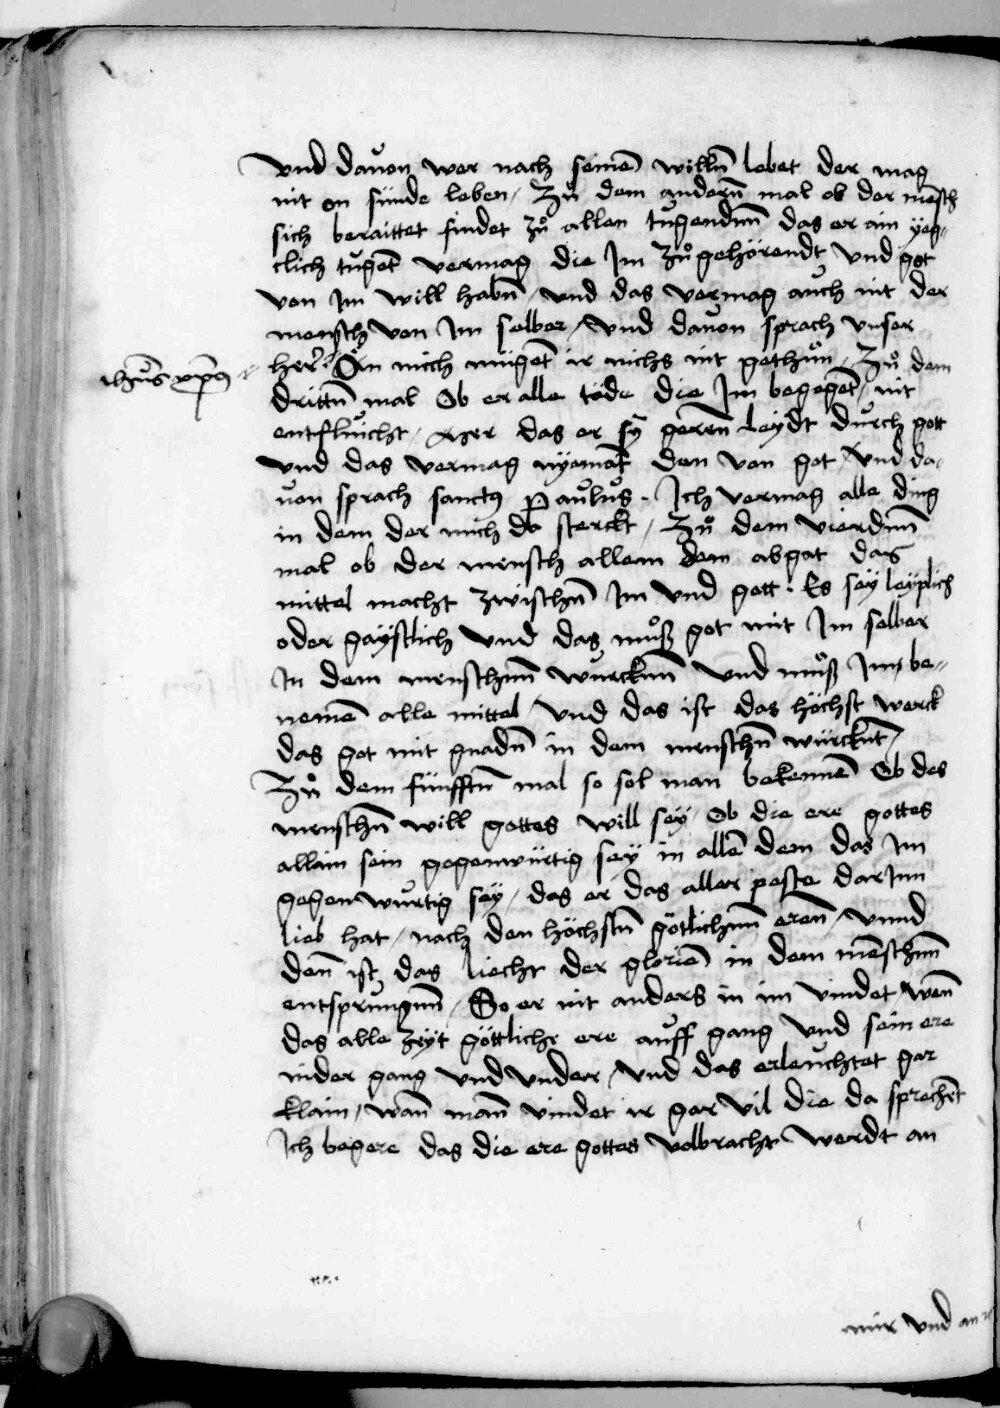 Vnd dauon wer nach seinem̄ willn̄ lebet der mag
nit on sünde leben / Zů dem andern̄ mal ob der mēsch
sich beraittet findet zů allen tugendnn̄ das er ain yeg=
clich tugēt vermag die Im zůgehörendt vnd got
von Im will habn̄ / vnd das vermag auch nit der
mensch von Im selber / vnd dauon sprach vnser
her̄ Ān mich mügēt ir nichs nit gethůn / Zů dem
ihūs xp̄s
drittn̄ mal Ob er alle töde die Im begegēt / nit
entfluicht / Aber das er sy geren̄ leydt durch gott
vnd das vermag nyemāt den von got / Vnd da=
uon sprach sanctꝰ Paulus · Ich vermag alle ding
in dem der mich da sterckt / Zů dem vierdnn̄
mal ob der mensch allem dem abgat das
mittel macht zwischn̄ Im vnd gott · Es sey leyplich
oder gaystlich Vnd das můß got mit Im selber
In dem menschnn̄ wurcknn̄ vnd můß Im be=
nemē alle mittel / vnd das ist das höchst werck
das got mit gnadn̄ in dem menschn̄ würcknt /
Zů dem fünfftn̄ mal so sol man bekennē Ob des
menschn̄ will gottes will sey / Ob die ere gottes
allain sein gegenwürtig sey in allē dem das Im
gegenwurtig sey / das er das aller peste darInn
lieb hat / nach den höchstn̄ götlichnn̄ eren̄ / vnnd
den̄ ist das liecht der gloriē in dem mēschnn̄
entsprungnn̄ / So er nit anders in im vindet wen̄
das alle zeyt göttliche ere auff gang vnd sein ere
nider gang vnd vnder / vnd das erleuchtet gar
klain / wan̄ man̄ vindet ir gar vil die da sprechēt
Ich begere das die ere gottes volbracht werdt an
mir vnd an